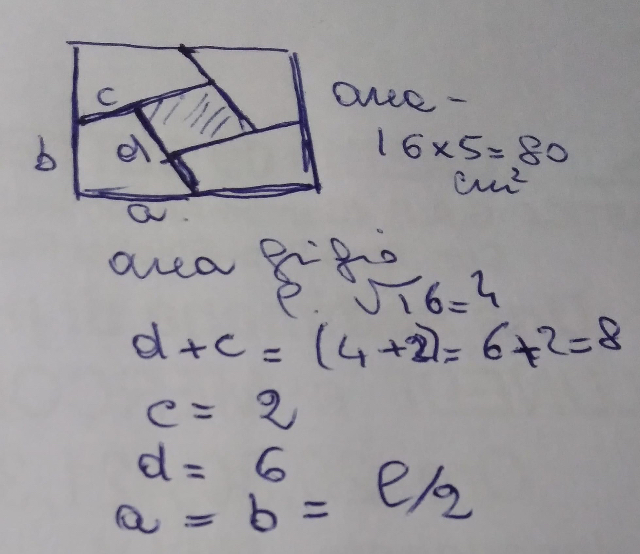 c
b
d
a.
area -
16x5=80
cm²
area grigio
l. √16=4
d+c = (4+2)= 6+2=8
c = 2
d = 6
a = b = l/2